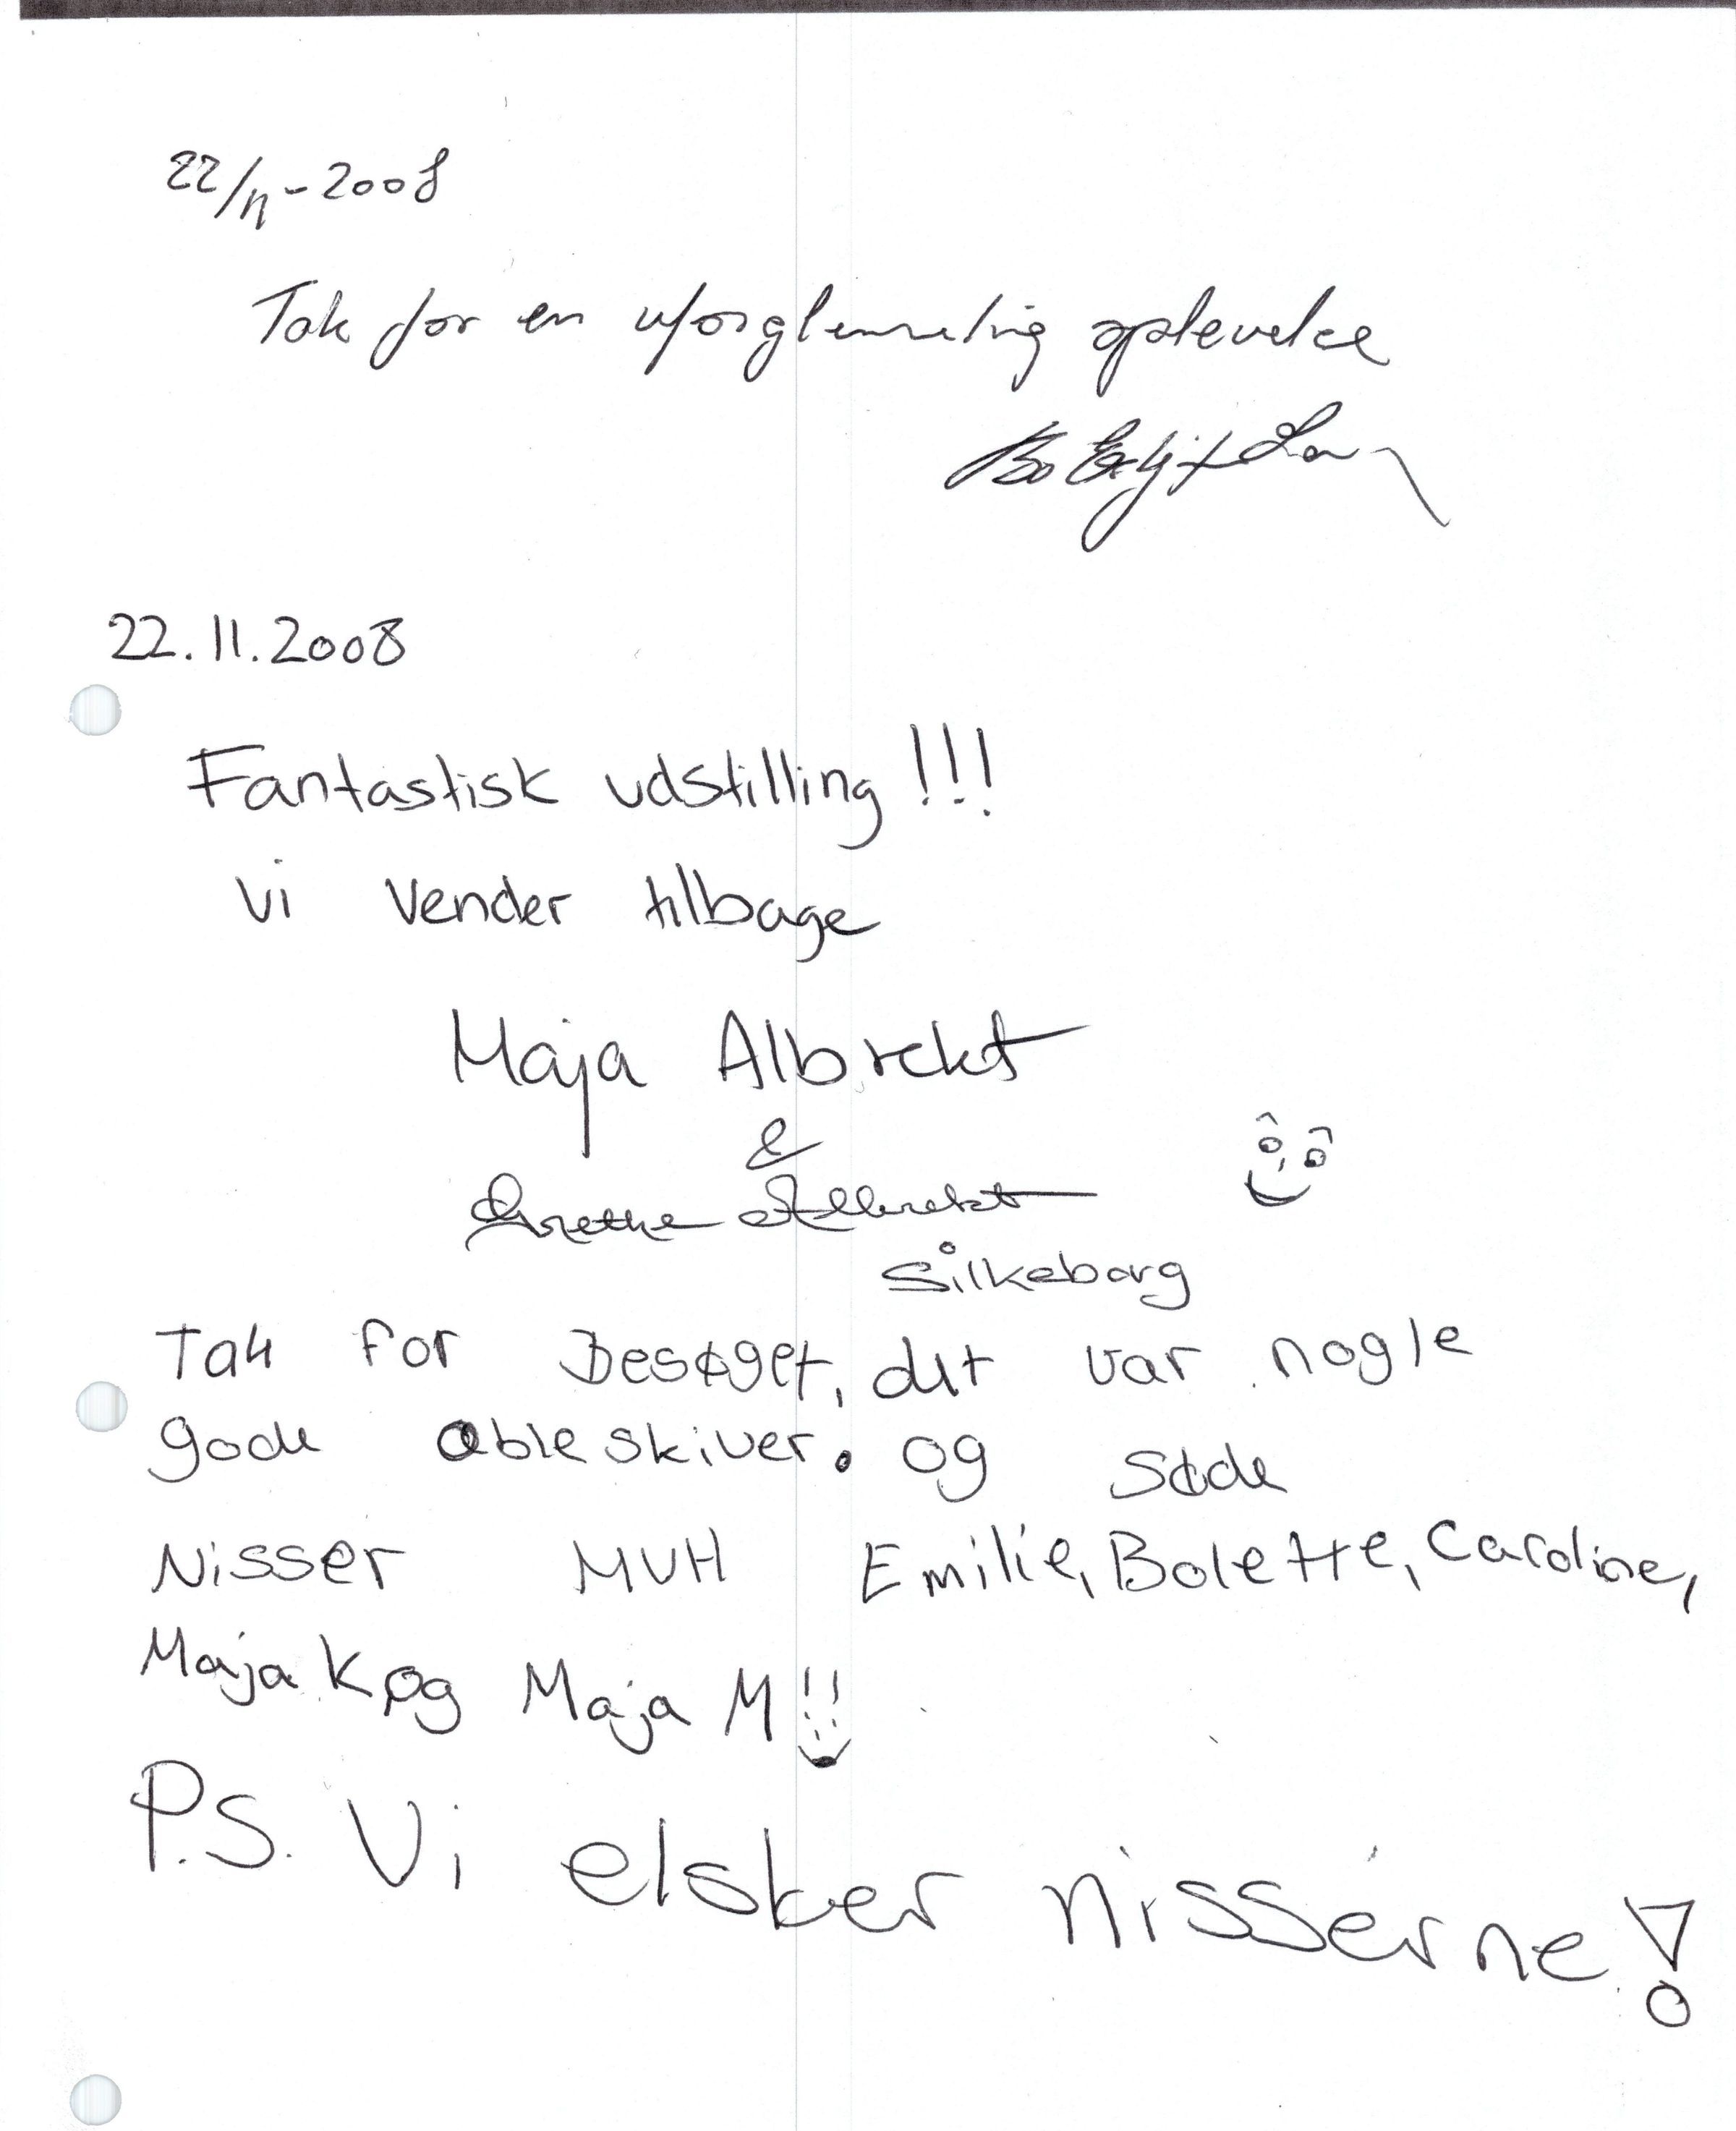 22/11-2008
Tak for en uforglemmelig oplevelse
Bo
22.11.2008
Fantastisk udstilling!!!
vi vender tilbage
Maja Albrekt
&
Grethe Albrekt
Silkeborg
Tak for Besøget, det var nogle
gode ableskiver. og søde
Nisser MVH Emilie, Bolette, Caroline,
Maja K og Maja M!!
P.S. Vi elsker nisserne!